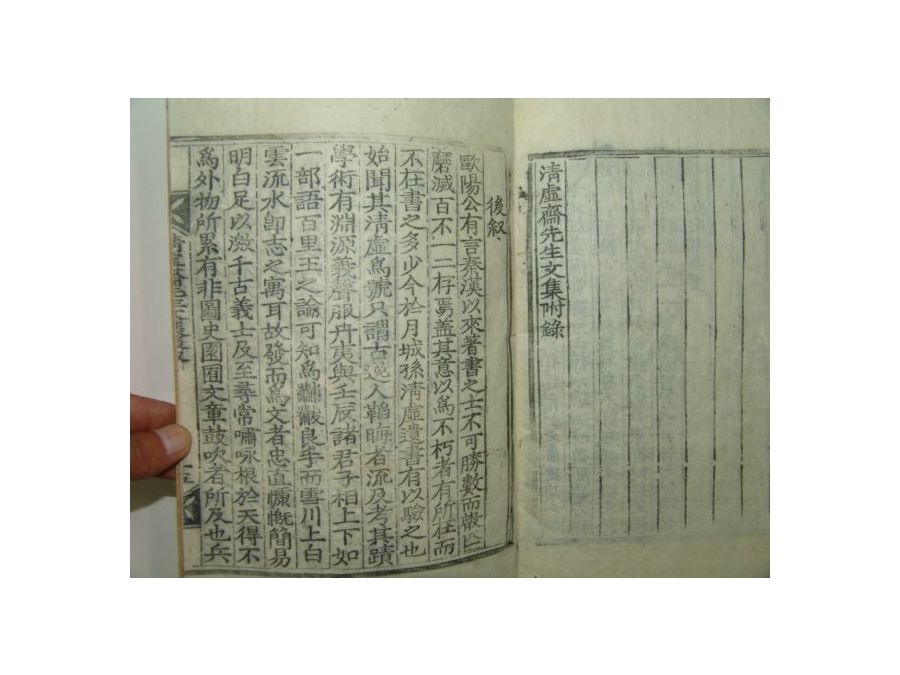 淸虛齋先生文集附錄
後叙
歐陽公有言秦漢以來著書之士不可勝數而散亾
磨滅百不一二存焉盖其意以爲不朽者有所在而
不在書之多少今於月城孫淸虛遺書有以驗之也
始聞其淸虛爲號只謂古逸人韜晦者流及考其蹟
學術有淵源義聲服卉夷與壬辰諸君子相上下如
一部語百里王之論可知爲黼黻良手而雲川上白
雲流水卽志之寓耳故發而爲文者忠直慷慨簡易
明白足以激千古義士及至尋常嘯咏根於天得不
爲外物所累有非圖史園囿文章鼓吹者所及也兵